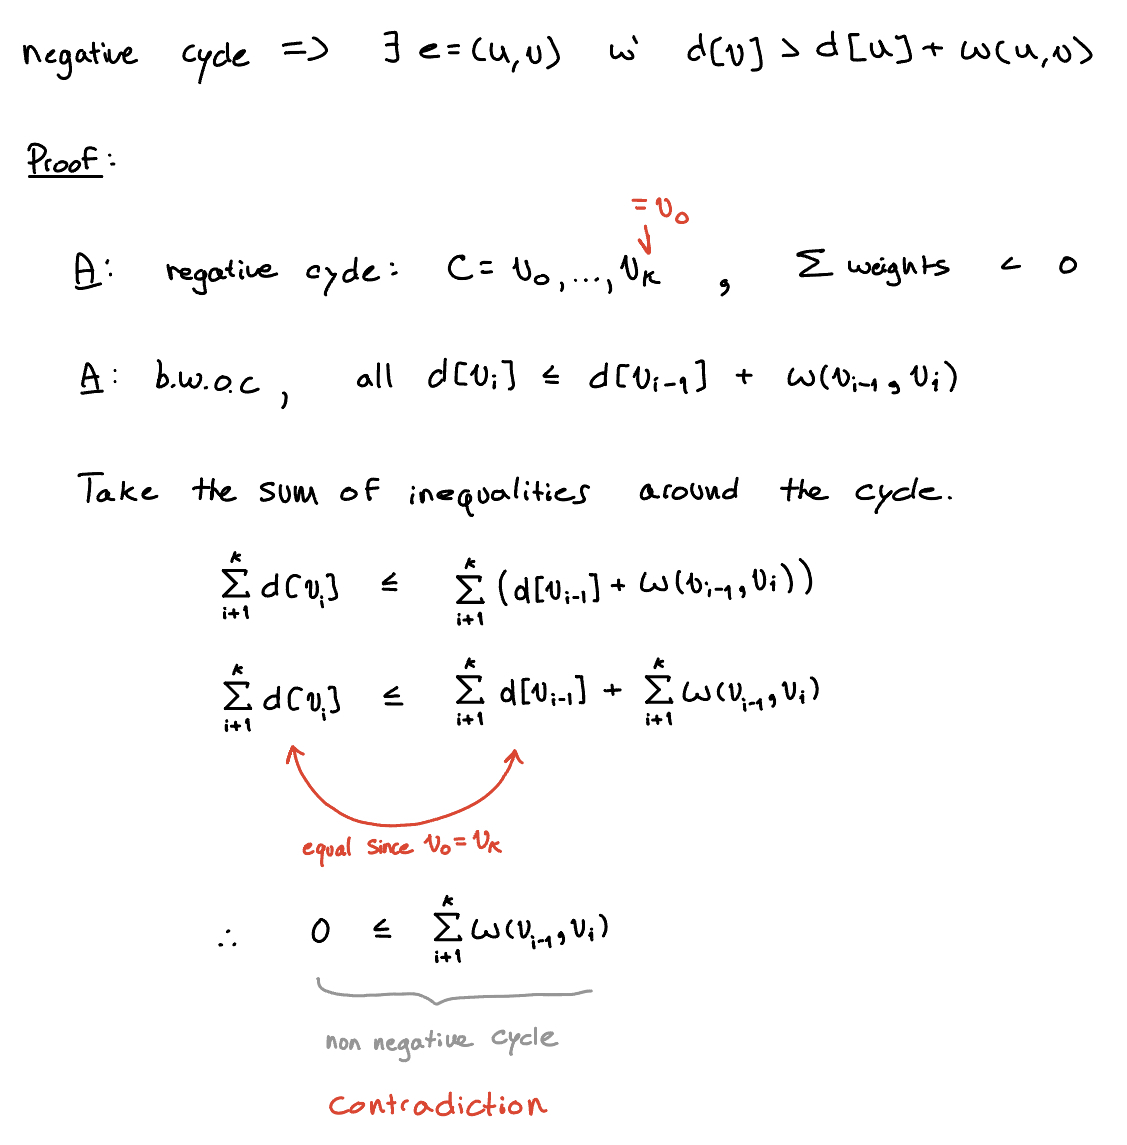 negative cycle => ∃ e=(u,v) w' d[v] > d[u] + w(u,v)
Proof:
= v₀
A: negative cycle: C = v₀,...,vₖ , Σ weights < 0
A: b.w.o.c, all d[vᵢ] ≤ d[vᵢ₋₁] + w(vᵢ₋₁, vᵢ)
Take the sum of inequalities around the cycle.
k Σ i+1 d[vᵢ] ≤ k Σ i+1 (d[vᵢ₋₁] + w(vᵢ₋₁, vᵢ))
k Σ i+1 d[vᵢ] ≤ k Σ i+1 d[vᵢ₋₁] + k Σ i+1 w(vᵢ₋₁, vᵢ)
equal since v₀ = vₖ
∴ 0 ≤ k Σ i+1 w(vᵢ₋₁, vᵢ)
non negative cycle
contradiction